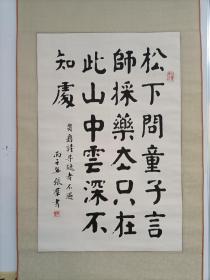 松下問童子言
師採藥去只在
此山中雲深不
知處
賈島詩尋隱者不遇
丙子年張書